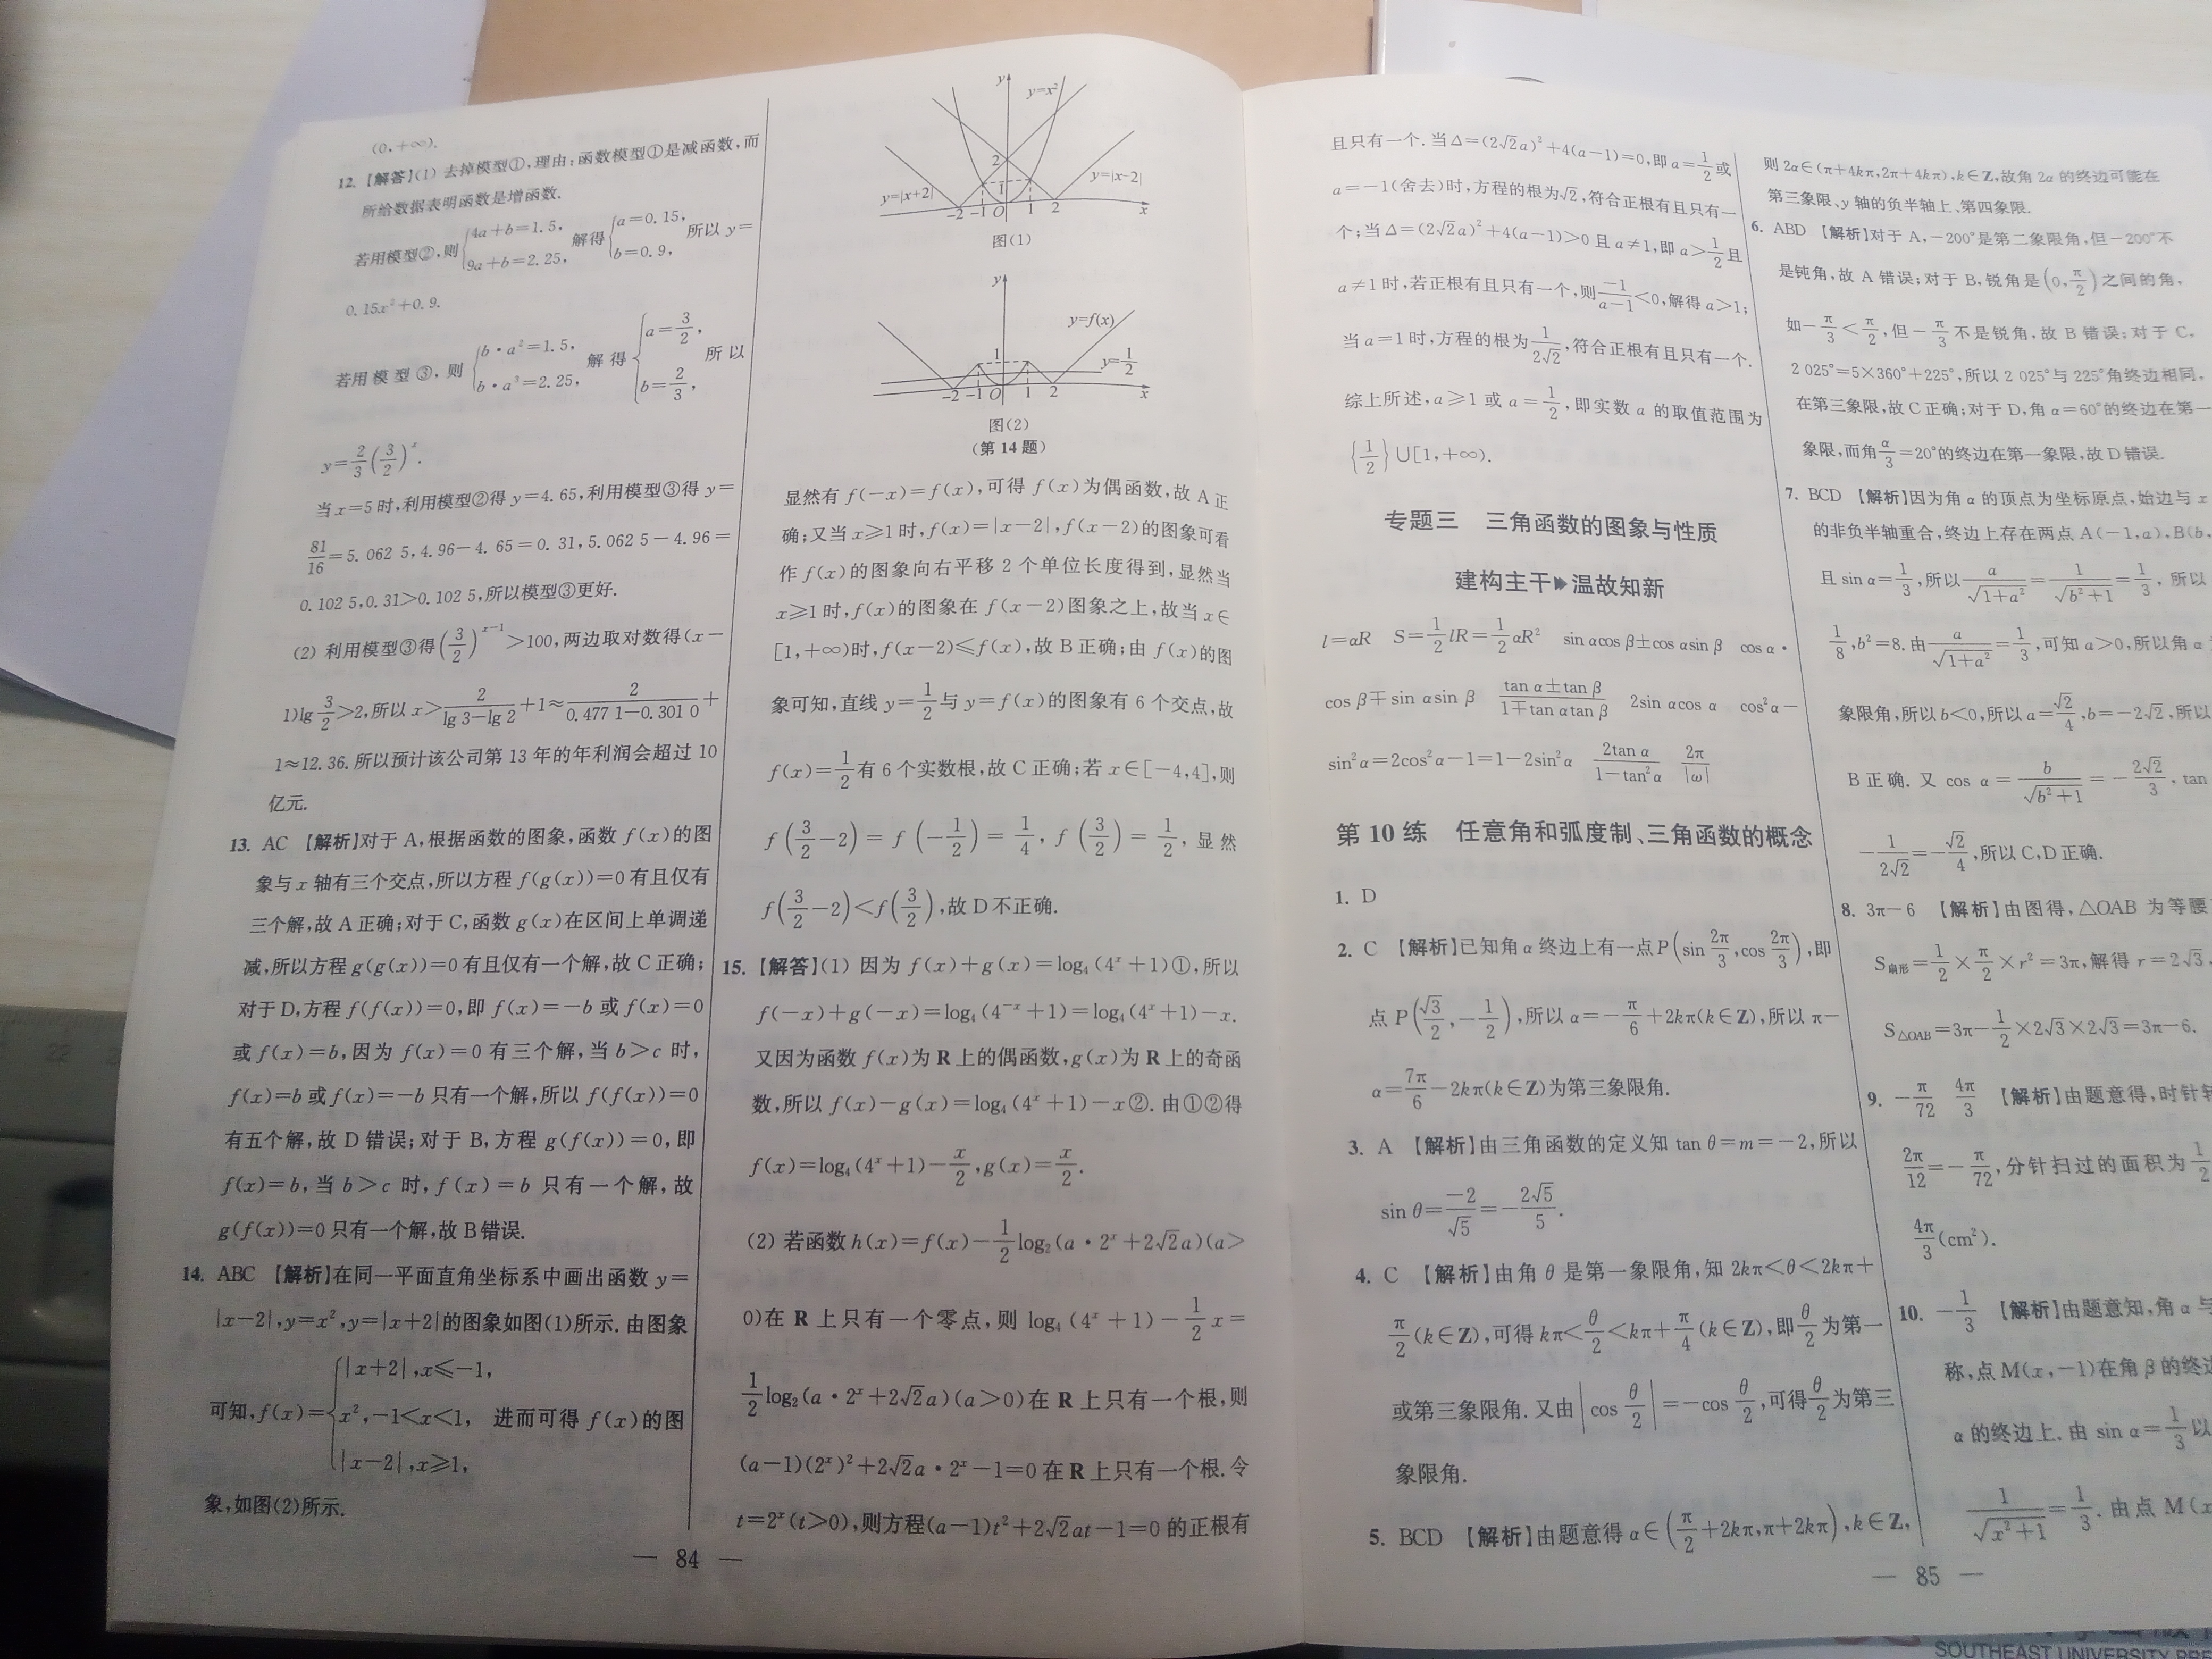 (0,+∞).
12. 【解答】(1) 去掉模型①,理由:函数模型①是减函数,而
所给数据表明函数是增函数.
若用模型②,则{4a+b=1.5, 9a+b=2.25, 解得{a=0.15, b=0.9, 所以 y=
0.15x²+0.9.
若用模型③,则{b·a²=1.5, b·a³=2.25, 解得{a=3/2, b=2/3, 所以
y=2/3(3/2)^x.
当 x=5 时,利用模型②得 y=4.65,利用模型③得 y=
81/16=5.062 5,4.96-4.65=0.31,5.062 5-4.96=
0.102 5,0.31>0.102 5,所以模型③更好.
(2) 利用模型③得(3/2)^(x-1)>100,两边取对数得(x-
1)lg 3/2>2,所以 x>2/(lg 3-lg 2)+1≈2/(0.477 1-0.301 0)+
1≈12.36.所以预计该公司第 13 年的年利润会超过 10
亿元.
13. AC 【解析】对于 A,根据函数的图象,函数 f(x)的图
象与 x 轴有三个交点,所以方程 f(g(x))=0 有且仅有
三个解,故 A 正确;对于 C,函数 g(x)在区间上单调递
减,所以方程 g(g(x))=0 有且仅有一个解,故 C 正确;
对于 D,方程 f(f(x))=0,即 f(x)=-b 或 f(x)=0
或 f(x)=b,因为 f(x)=0 有三个解,当 b>c 时,
f(x)=b 或 f(x)=-b 只有一个解,所以 f(f(x))=0
有五个解,故 D 错误;对于 B,方程 g(f(x))=0,即
f(x)=b,当 b>c 时,f(x)=b 只有一个解,故
g(f(x))=0 只有一个解,故 B 错误.
14. ABC 【解析】在同一平面直角坐标系中画出函数 y=
|x-2|,y=x²,y=|x+2|的图象如图(1)所示.由图象
可知,f(x)={|x+2|,x≤-1, x²,-1<x<1, |x-2|,x≥1, 进而可得 f(x)的图
象,如图(2)所示.
— 84 —
y
y=x²
2
1
y=|x+2|
y=|x-2|
-2 -1 O 1 2 x
图(1)
y
y=f(x)
1
y=1/2
-2 -1 O 1 2 x
图(2)
(第 14 题)
显然有 f(-x)=f(x),可得 f(x)为偶函数,故 A 正
确;又当 x≥1 时,f(x)=|x-2|,f(x-2)的图象可看
作 f(x)的图象向右平移 2 个单位长度得到,显然当
x≥1 时,f(x)的图象在 f(x-2)图象之上,故当 x∈
[1,+∞)时,f(x-2)≤f(x),故 B 正确;由 f(x)的图
象可知,直线 y=1/2 与 y=f(x)的图象有 6 个交点,故
f(x)=1/2 有 6 个实数根,故 C 正确;若 x∈[-4,4],则
f(3/2-2)=f(-1/2)=1/4,f(3/2)=1/2,显然
f(3/2-2)<f(3/2),故 D 不正确.
15. 【解答】(1) 因为 f(x)+g(x)=log₄(4^x+1)①,所以
f(-x)+g(-x)=log₄(4^(-x)+1)=log₄(4^x+1)-x.
又因为函数 f(x)为 R 上的偶函数,g(x)为 R 上的奇函
数,所以 f(x)-g(x)=log₄(4^x+1)-x②.由①②得
f(x)=log₄(4^x+1)-x/2,g(x)=x/2.
(2) 若函数 h(x)=f(x)-1/2 log₂(a·2^x+2√2a)(a>
0)在 R 上只有一个零点,则 log₄(4^x+1)-1/2 x=
1/2 log₂(a·2^x+2√2a)(a>0)在 R 上只有一个根,则
(a-1)(2^x)²+2√2a·2^x-1=0 在 R 上只有一个根.令
t=2^x(t>0),则方程(a-1)t²+2√2at-1=0 的正根有
且只有一个.当 Δ=(2√2a)²+4(a-1)=0,即 a=1/2 或
a=-1(舍去)时,方程的根为√2,符合正根有且只有一
个;当 Δ=(2√2a)²+4(a-1)>0 且 a≠1,即 a>1/2 且
a≠1 时,若正根有且只有一个,则 -1/(a-1)<0,解得 a>1;
当 a=1 时,方程的根为 1/(2√2),符合正根有且只有一个.
综上所述,a≥1 或 a=1/2,即实数 a 的取值范围为
{1/2}∪[1,+∞).
专题三 三角函数的图象与性质
建构主干 温故知新
l=αR S=1/2 lR=1/2 αR² sin αcos β±cos αsin β cos α·
cos β∓sin αsin β (tan α±tan β)/(1∓tan αtan β) 2sin αcos α cos²α-
sin²α=2cos²α-1=1-2sin²α 2tan α/(1-tan²α) 2π/|ω|
第 10 练 任意角和弧度制、三角函数的概念
1. D
2. C 【解析】已知角 α 终边上有一点 P(sin 2π/3,cos 2π/3),即
点 P(√3/2,-1/2),所以 α=-π/6+2kπ(k∈Z),所以 π-
α=7π/6-2kπ(k∈Z)为第三象限角.
3. A 【解析】由三角函数的定义知 tan θ=m=-2,所以
sin θ=-2/√5=-2√5/5.
4. C 【解析】由角 θ 是第一象限角,知 2kπ<θ<2kπ+
π/2(k∈Z),可得 kπ<θ/2<kπ+π/4(k∈Z),即 θ/2 为第一
或第三象限角.又由|cos θ/2|=-cos θ/2,可得 θ/2 为第三
象限角.
5. BCD 【解析】由题意得 α∈(π/2+2kπ,π+2kπ),k∈Z,
— 85 —
则 2α∈(π+4kπ,2π+4kπ),k∈Z,故角 2α 的终边可能在
第三象限、y 轴的负半轴上、第四象限.
6. ABD 【解析】对于 A,-200°是第二象限角,但-200°不
是钝角,故 A 错误;对于 B,锐角是(0,π/2)之间的角,
如-π/3<π/2,但-π/3 不是锐角,故 B 错误;对于 C,
2 025°=5×360°+225°,所以 2 025°与 225°角终边相同,
在第三象限,故 C 正确;对于 D,角 α=60°的终边在第一
象限,而角 α/3=20°的终边在第一象限,故 D 错误.
7. BCD 【解析】因为角 α 的顶点为坐标原点,始边与 x
的非负半轴重合,终边上存在两点 A(-1,a),B(b,
且 sin α=1/3,所以 a/√(1+a²)=1/√(b²+1)=1/3,所以
1/8,b²=8.由 a/√(1+a²)=1/3,可知 a>0,所以角 α
象限角,所以 b<0,所以 a=√2/4,b=-2√2,所以
B 正确.又 cos α=b/√(b²+1)=-2√2/3,tan
-1/(2√2)=-√2/4,所以 C,D 正确.
8. 3π-6 【解析】由图得,△OAB 为等腰
S扇形=1/2×π/2×r²=3π,解得 r=2√3,
S△OAB=3π-1/2×2√3×2√3=3π-6.
9. -π/72 4π/3 【解析】由题意得,时针转
2π/12=-π/72,分针扫过的面积为 1/2
4π/3(cm²).
10. -1/3 【解析】由题意知,角 α 与
称,点 M(x,-1)在角 β 的终边
α 的终边上.由 sin α=1/3 以
1/√(x²+1)=1/3.由点 M(x
22
SOUTHEAST UNIVERSITY PRE